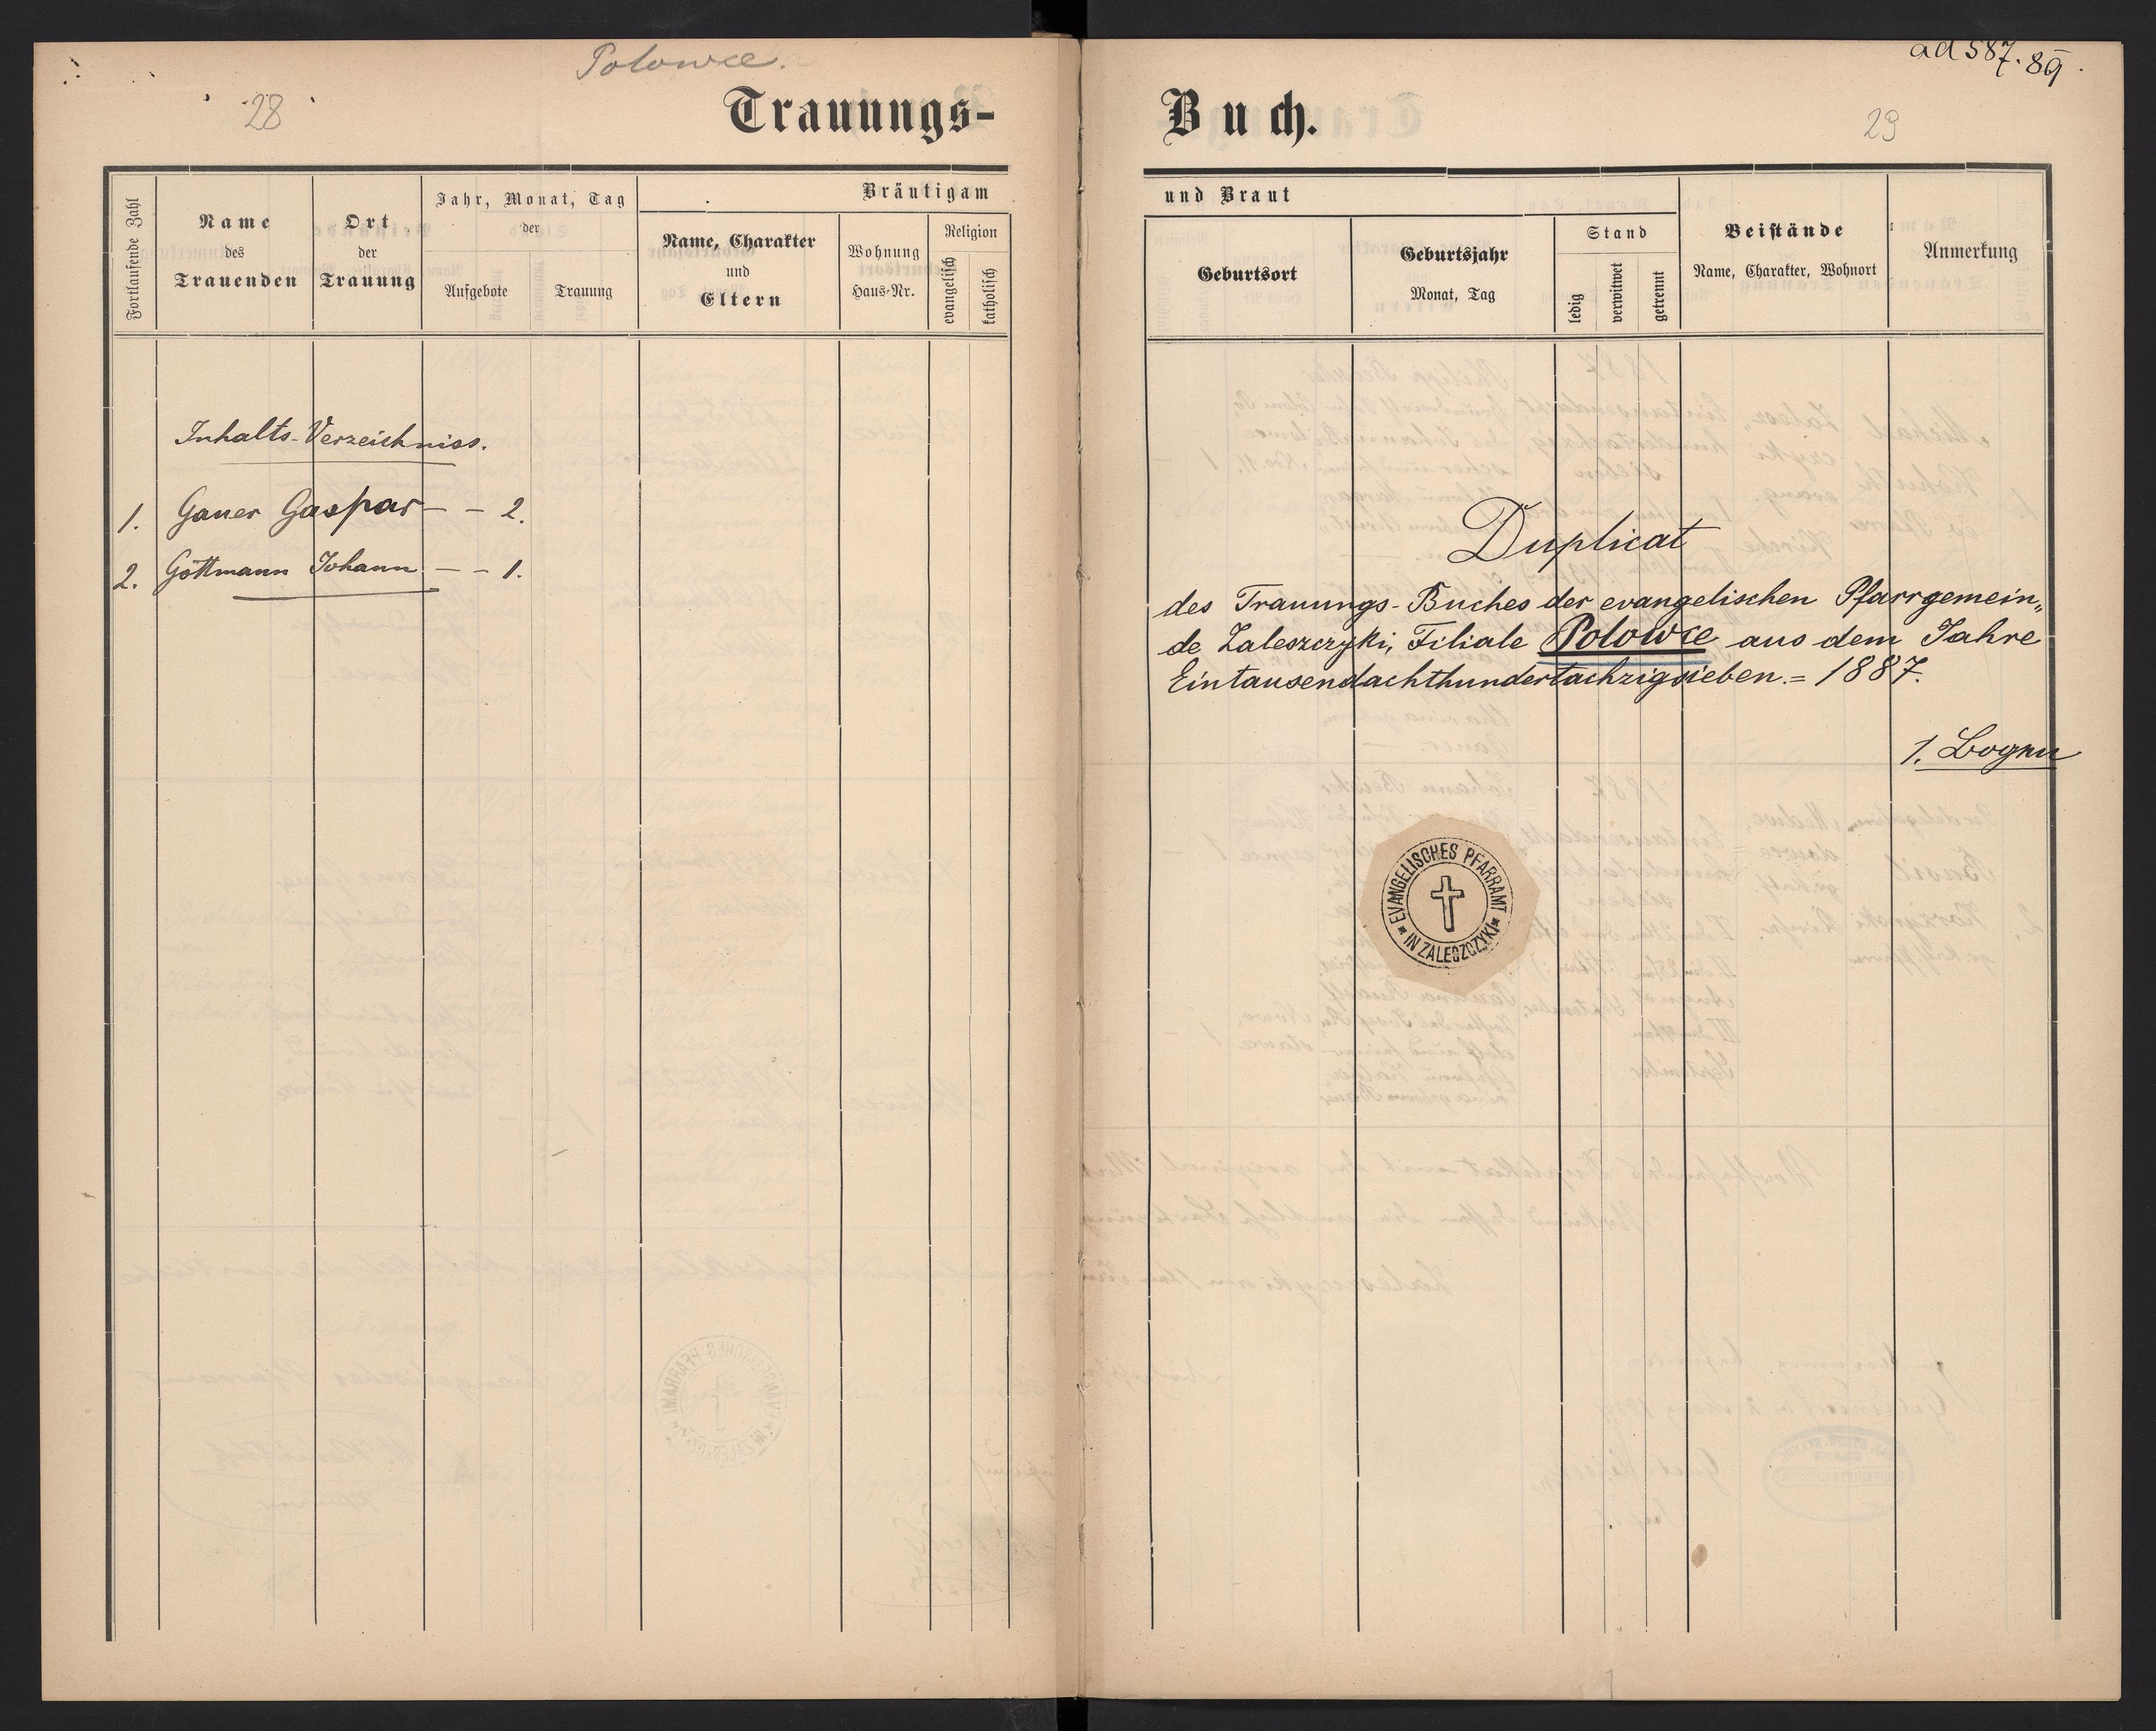 Polowce.
28
Trauungs-
Fortlaufende Zahl
Name
des
Trauenden
Ort
der
Trauung
Jahr, Monat, Tag
der
Aufgebote
Trauung
Bräutigam
Name, Charakter
und
Eltern
Wohnung
Haus-Nr.
Religion
evangelisch
katholisch
Inhalts-Verzeichniss.
1. Gauer Gaspar - - 2.
2. Göttmann Johann - - 1.
ad 587.89.
Buch.
29
und Braut
Geburtsort
Geburtsjahr
Monat, Tag
Stand
ledig
verwitwet
getrennt
Beistände
Name, Charakter, Wohnort
Anmerkung
Duplicat
des Trauungs-Buches der evangelischen Pfarrgemein„
de Zaleszczyki, Filiale Polowce aus dem Jahre
Eintausendachthundertachzigsieben = 1887.
1. Bogen
EVANGELISCHES PFARRAMT
* IN ZALESZCZYKI *